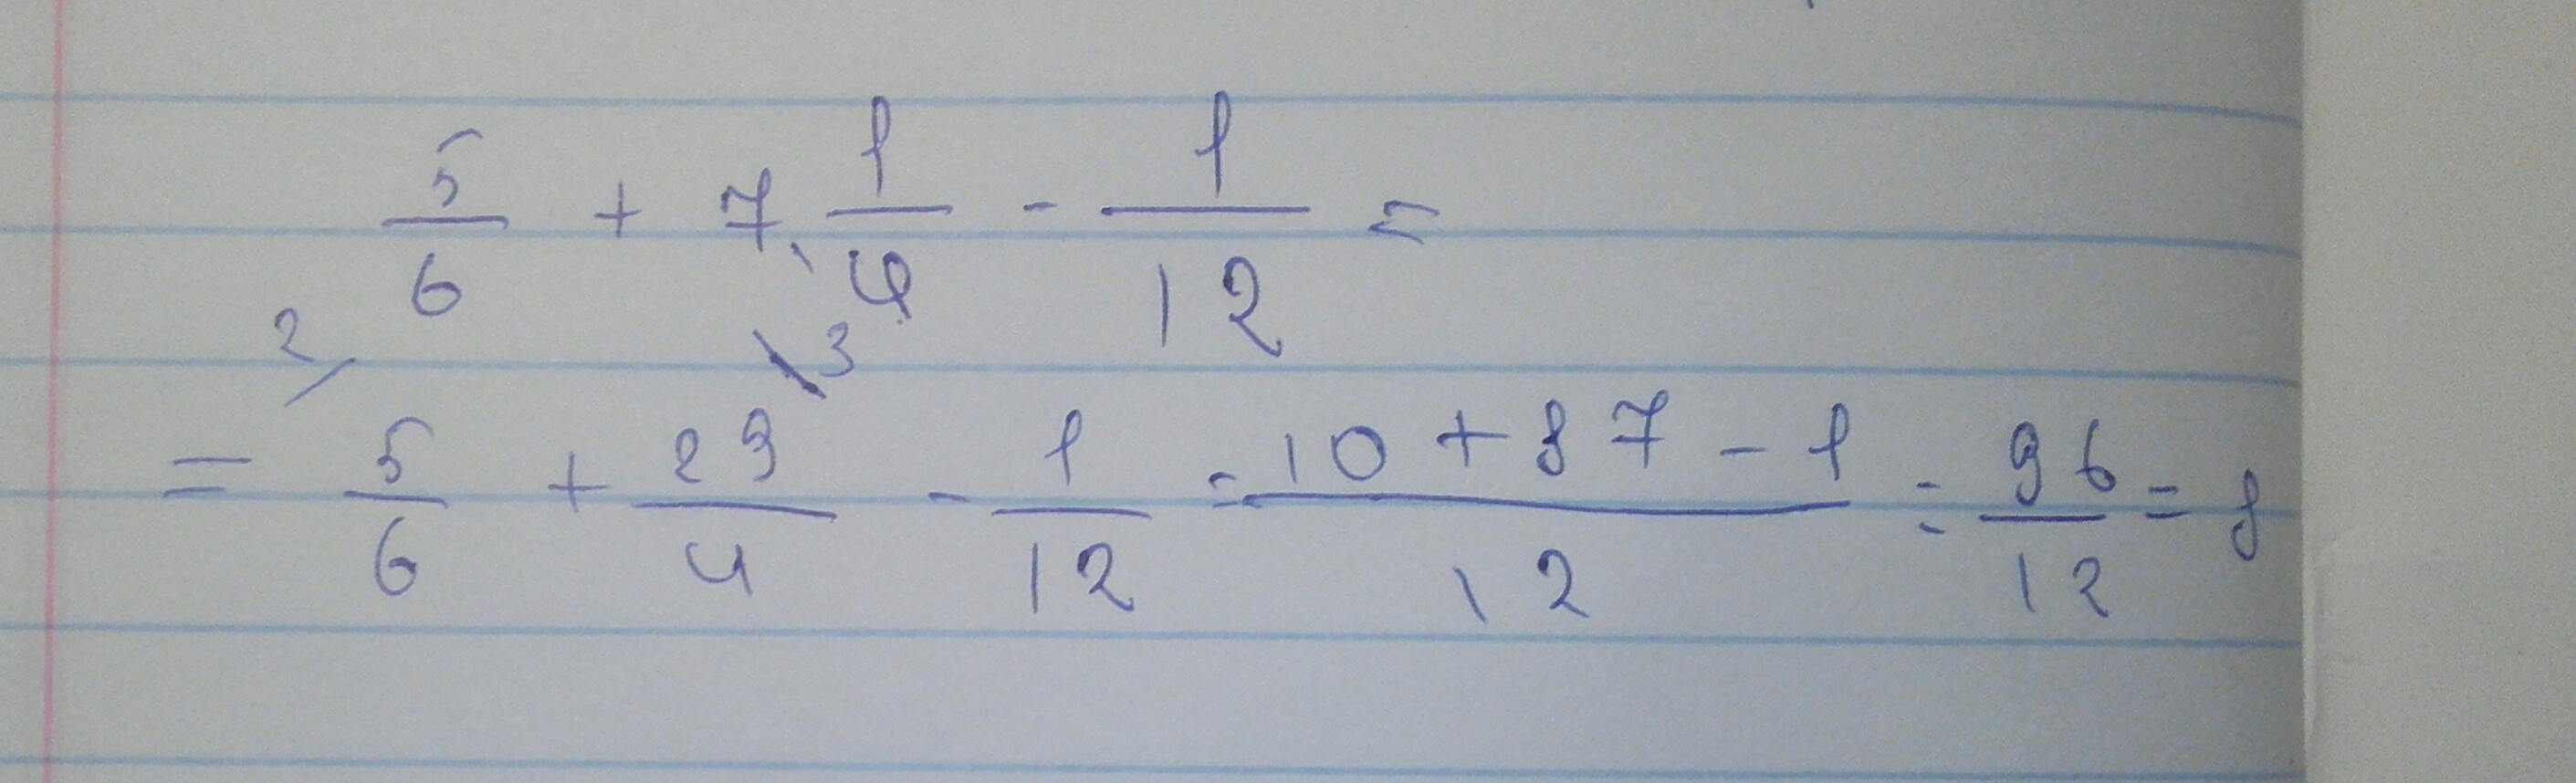 5/6 + 7 1/4 - 1/12 =
2 3
= 5/6 + 29/4 - 1/12 = 10 + 87 - 1/12 = 96/12 = 8